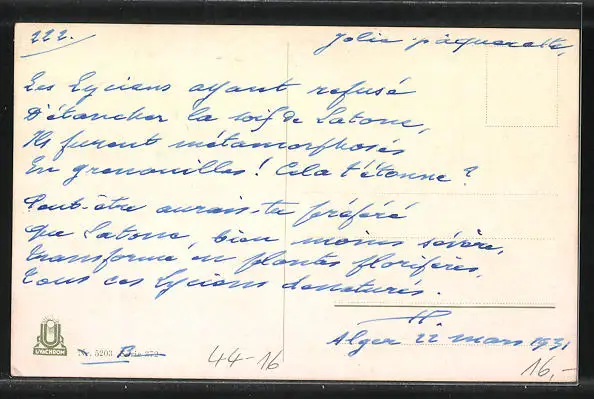 222.
Jolie pâquerette,
Les Lyciens ayant refusé
D'étancher la soif de Latone,
Ils furent métamorphosés
En grenouilles ! Cela t'étonne ?
Peut-être aurais-tu préféré
Que Latone, bien moins sévère,
Transforme en plantes florifères,
Tous ces Lyciens dénaturés.
Alger 22 mars 1931
UVACHROM
Nr. 5203 B Serie 272
44-16
16,-